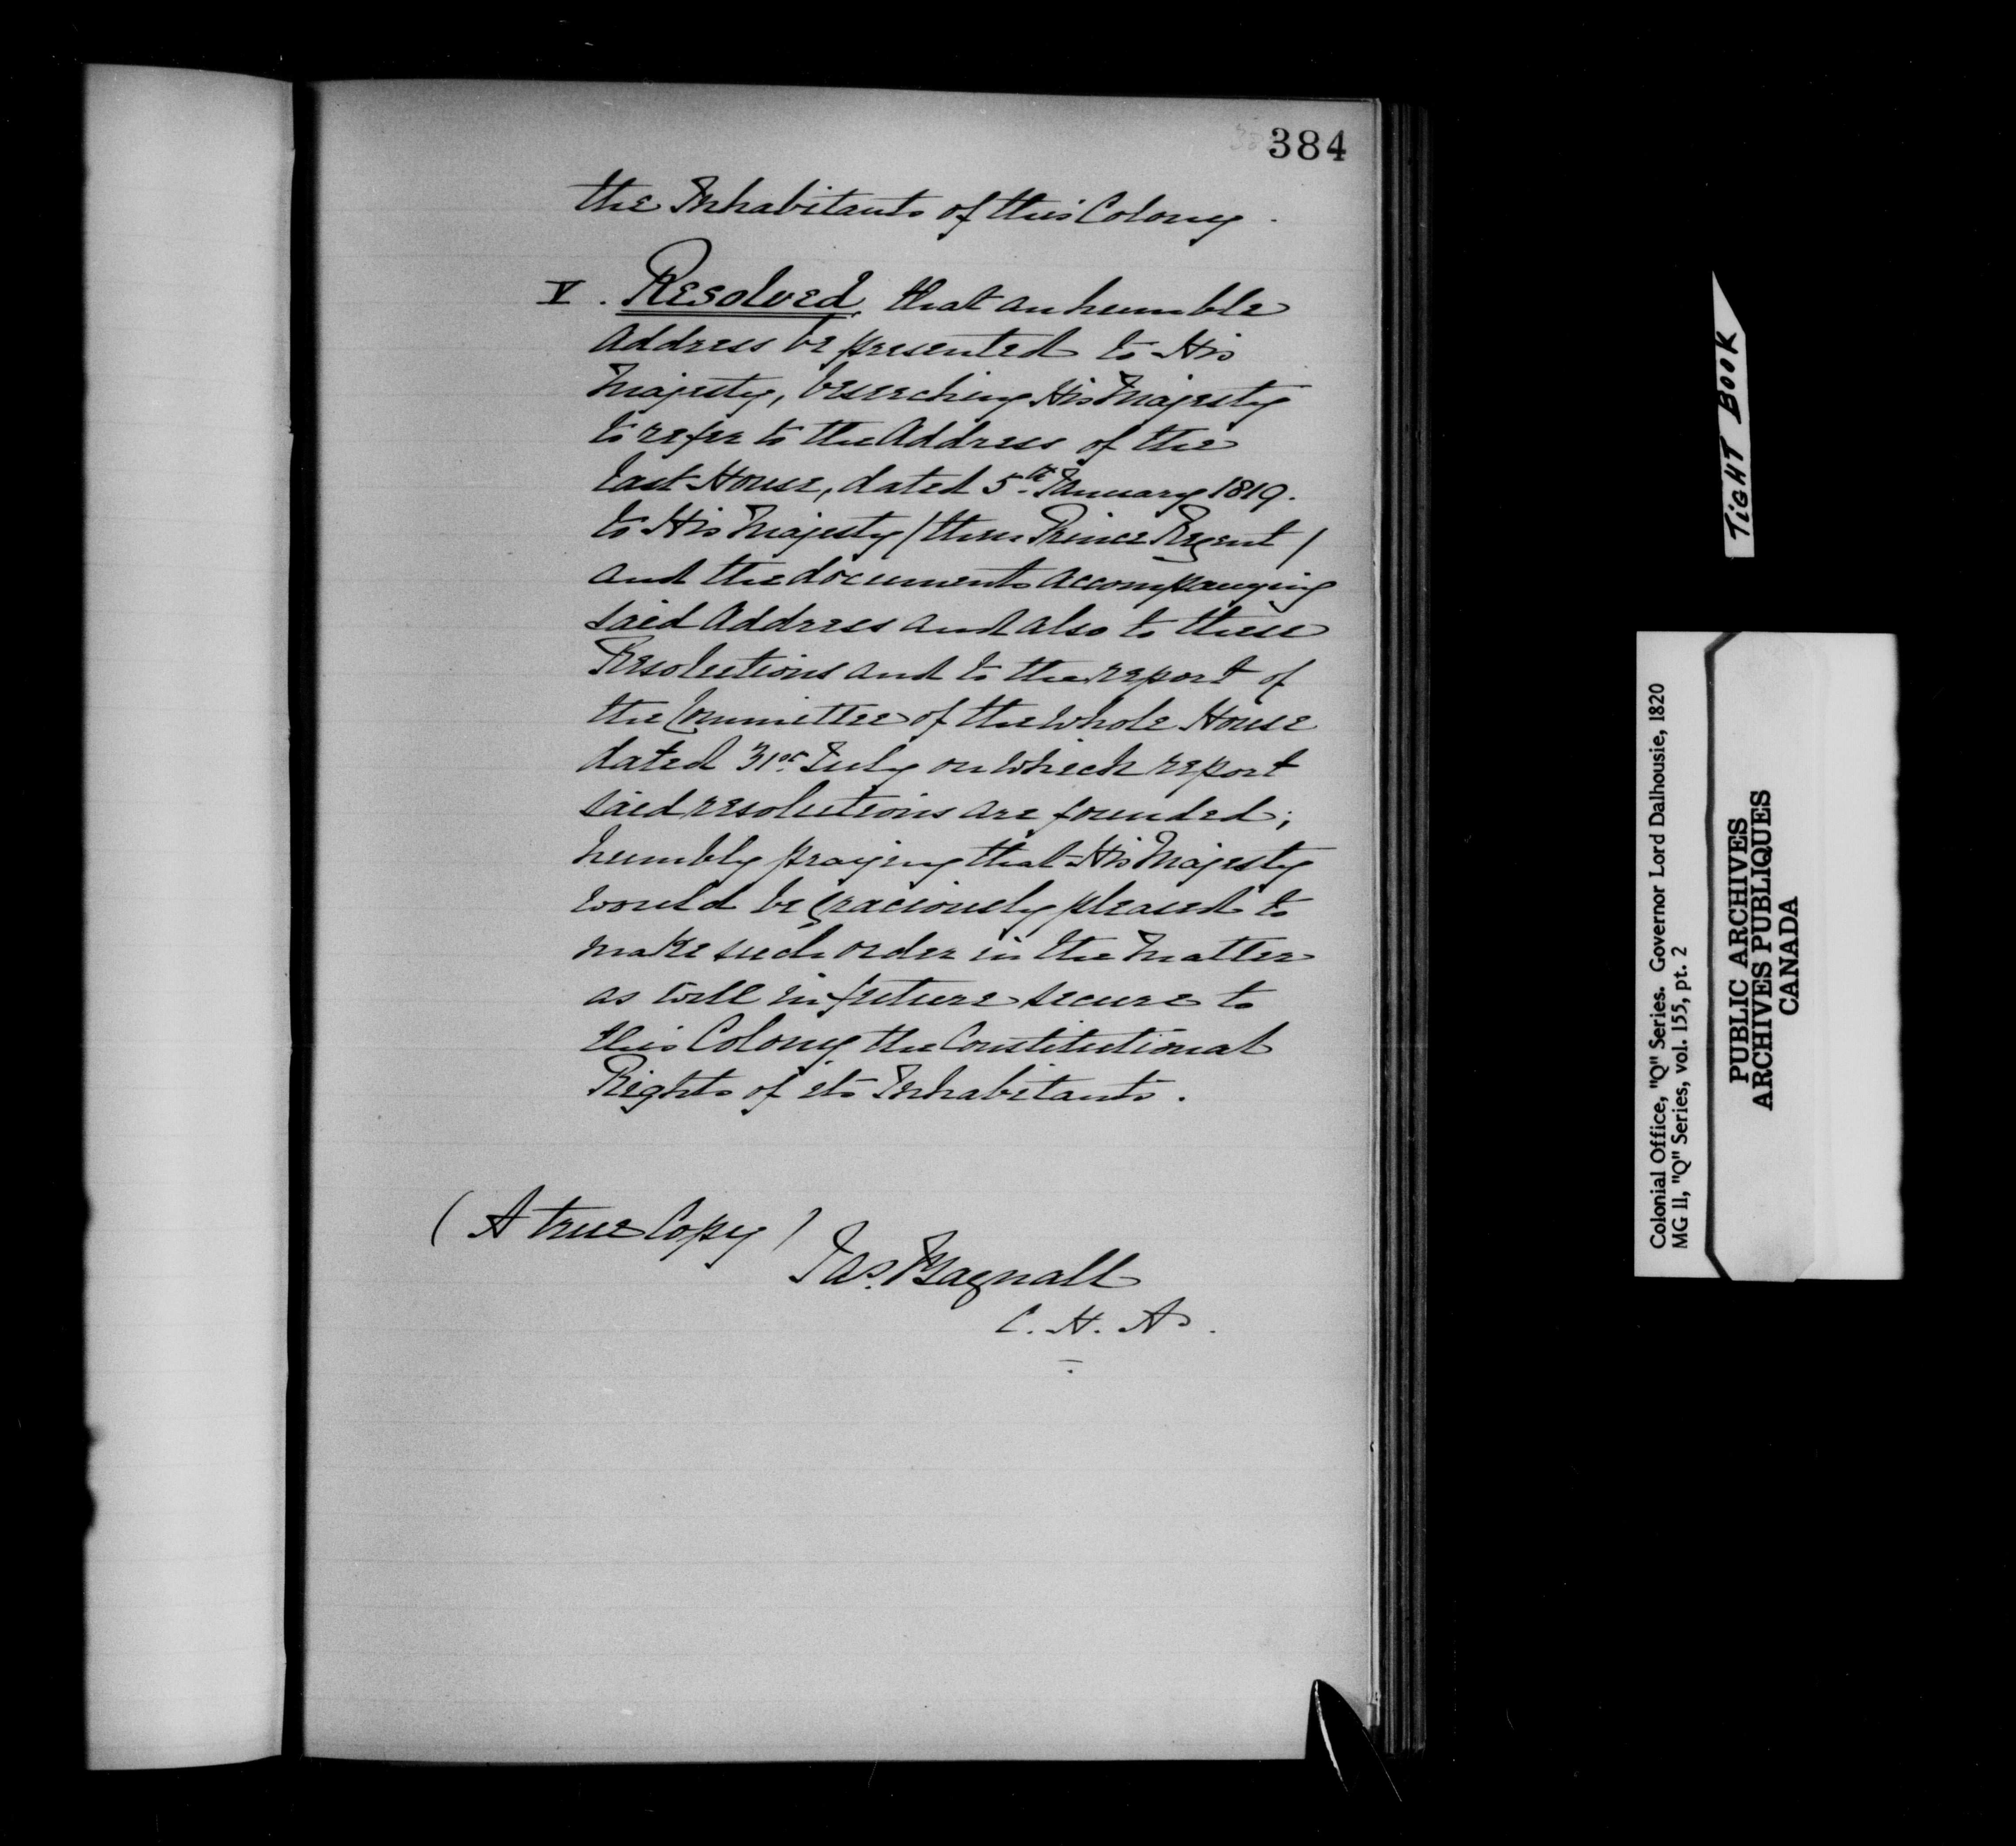 384
the Inhabitants of this Colony.
V. Resolved, that an humble
Address be presented to His
Majesty, beseeching His Majesty
to refer to the Address of the
last House, dated 5th January 1819.
to His Majesty (then Prince Regent)
and the documents accompanying
said Address and also to these
Resolutions and to the report of
the Committee of the Whole House
dated 31st July on which report
said resolutions are founded;
humbly praying that His Majesty
would be graciously pleased to
make such order in the Matter
as will in future secure to
this Colony the Constitutional
Rights of its Inhabitants.
(A true Copy)
Jas. Bagnall
C. H. A.
TIGHT BOOK
Colonial Office, "Q" Series. Governor Lord Dalhousie, 1820
MG 11, "Q" Series, vol. 155, pt. 2
PUBLIC ARCHIVES
ARCHIVES PUBLIQUES
CANADA